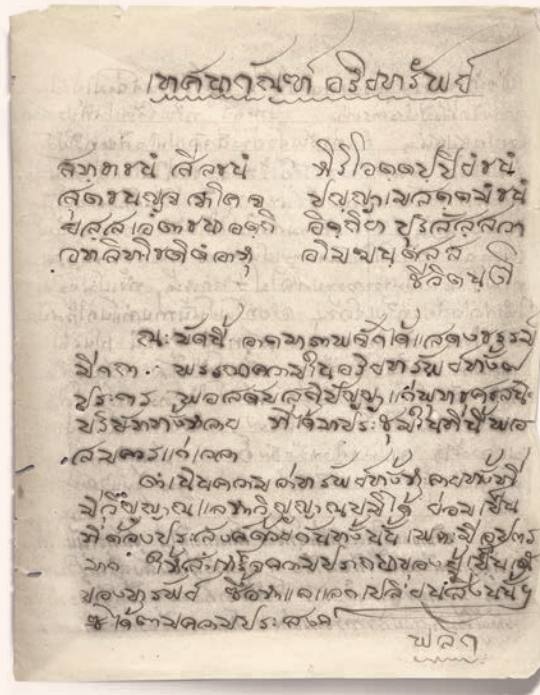 เทศนากัณฑ์ อริยทรัพย์
สทฺธาธนํ สีลธนํ หิริโอตฺตปฺปิยํ ธนํ
สุตธนญฺจ จาโค จ ปญฺญา เม สตฺตมํ ธนํ
ยสฺส เอตา ธนา อตฺถิ อิตฺถิยา ปุริสสฺส วา
อทลิทฺโทติ ตํ อาหุ อโมฆนฺตสฺส
ชีวิตนฺติ
ณ บัดนี้ อาตมาภาพจักได้แสดงธรรมิ
มีกถา พรรณาความในอริยทรัพย์ทั้ง ๗
ประการ พอสดบสติปัญญา แก่พุทธศาสนิ
บริษัททั้งหลาย ที่ได้มาประชุมในที่นี้พอ
สมควรแก่เวลา
ดำเนินความว่าทรัพย์ทั้งหลายทั้งที่
มีวิญญาณและหาวิญญาณบ่มิได้ ย่อมเป็น
ที่ต้องประสงค์ด้วยกันทั้งนั้น เพราะมีอุปการ
มาก ให้สำเร็จความปรารถนาของผู้เป็นเจ้า
ของทรัพย์ ซื้อหาแลกเปลี่ยนสิ่งนั้นๆ
ได้ตามความประสงค์
พลิก